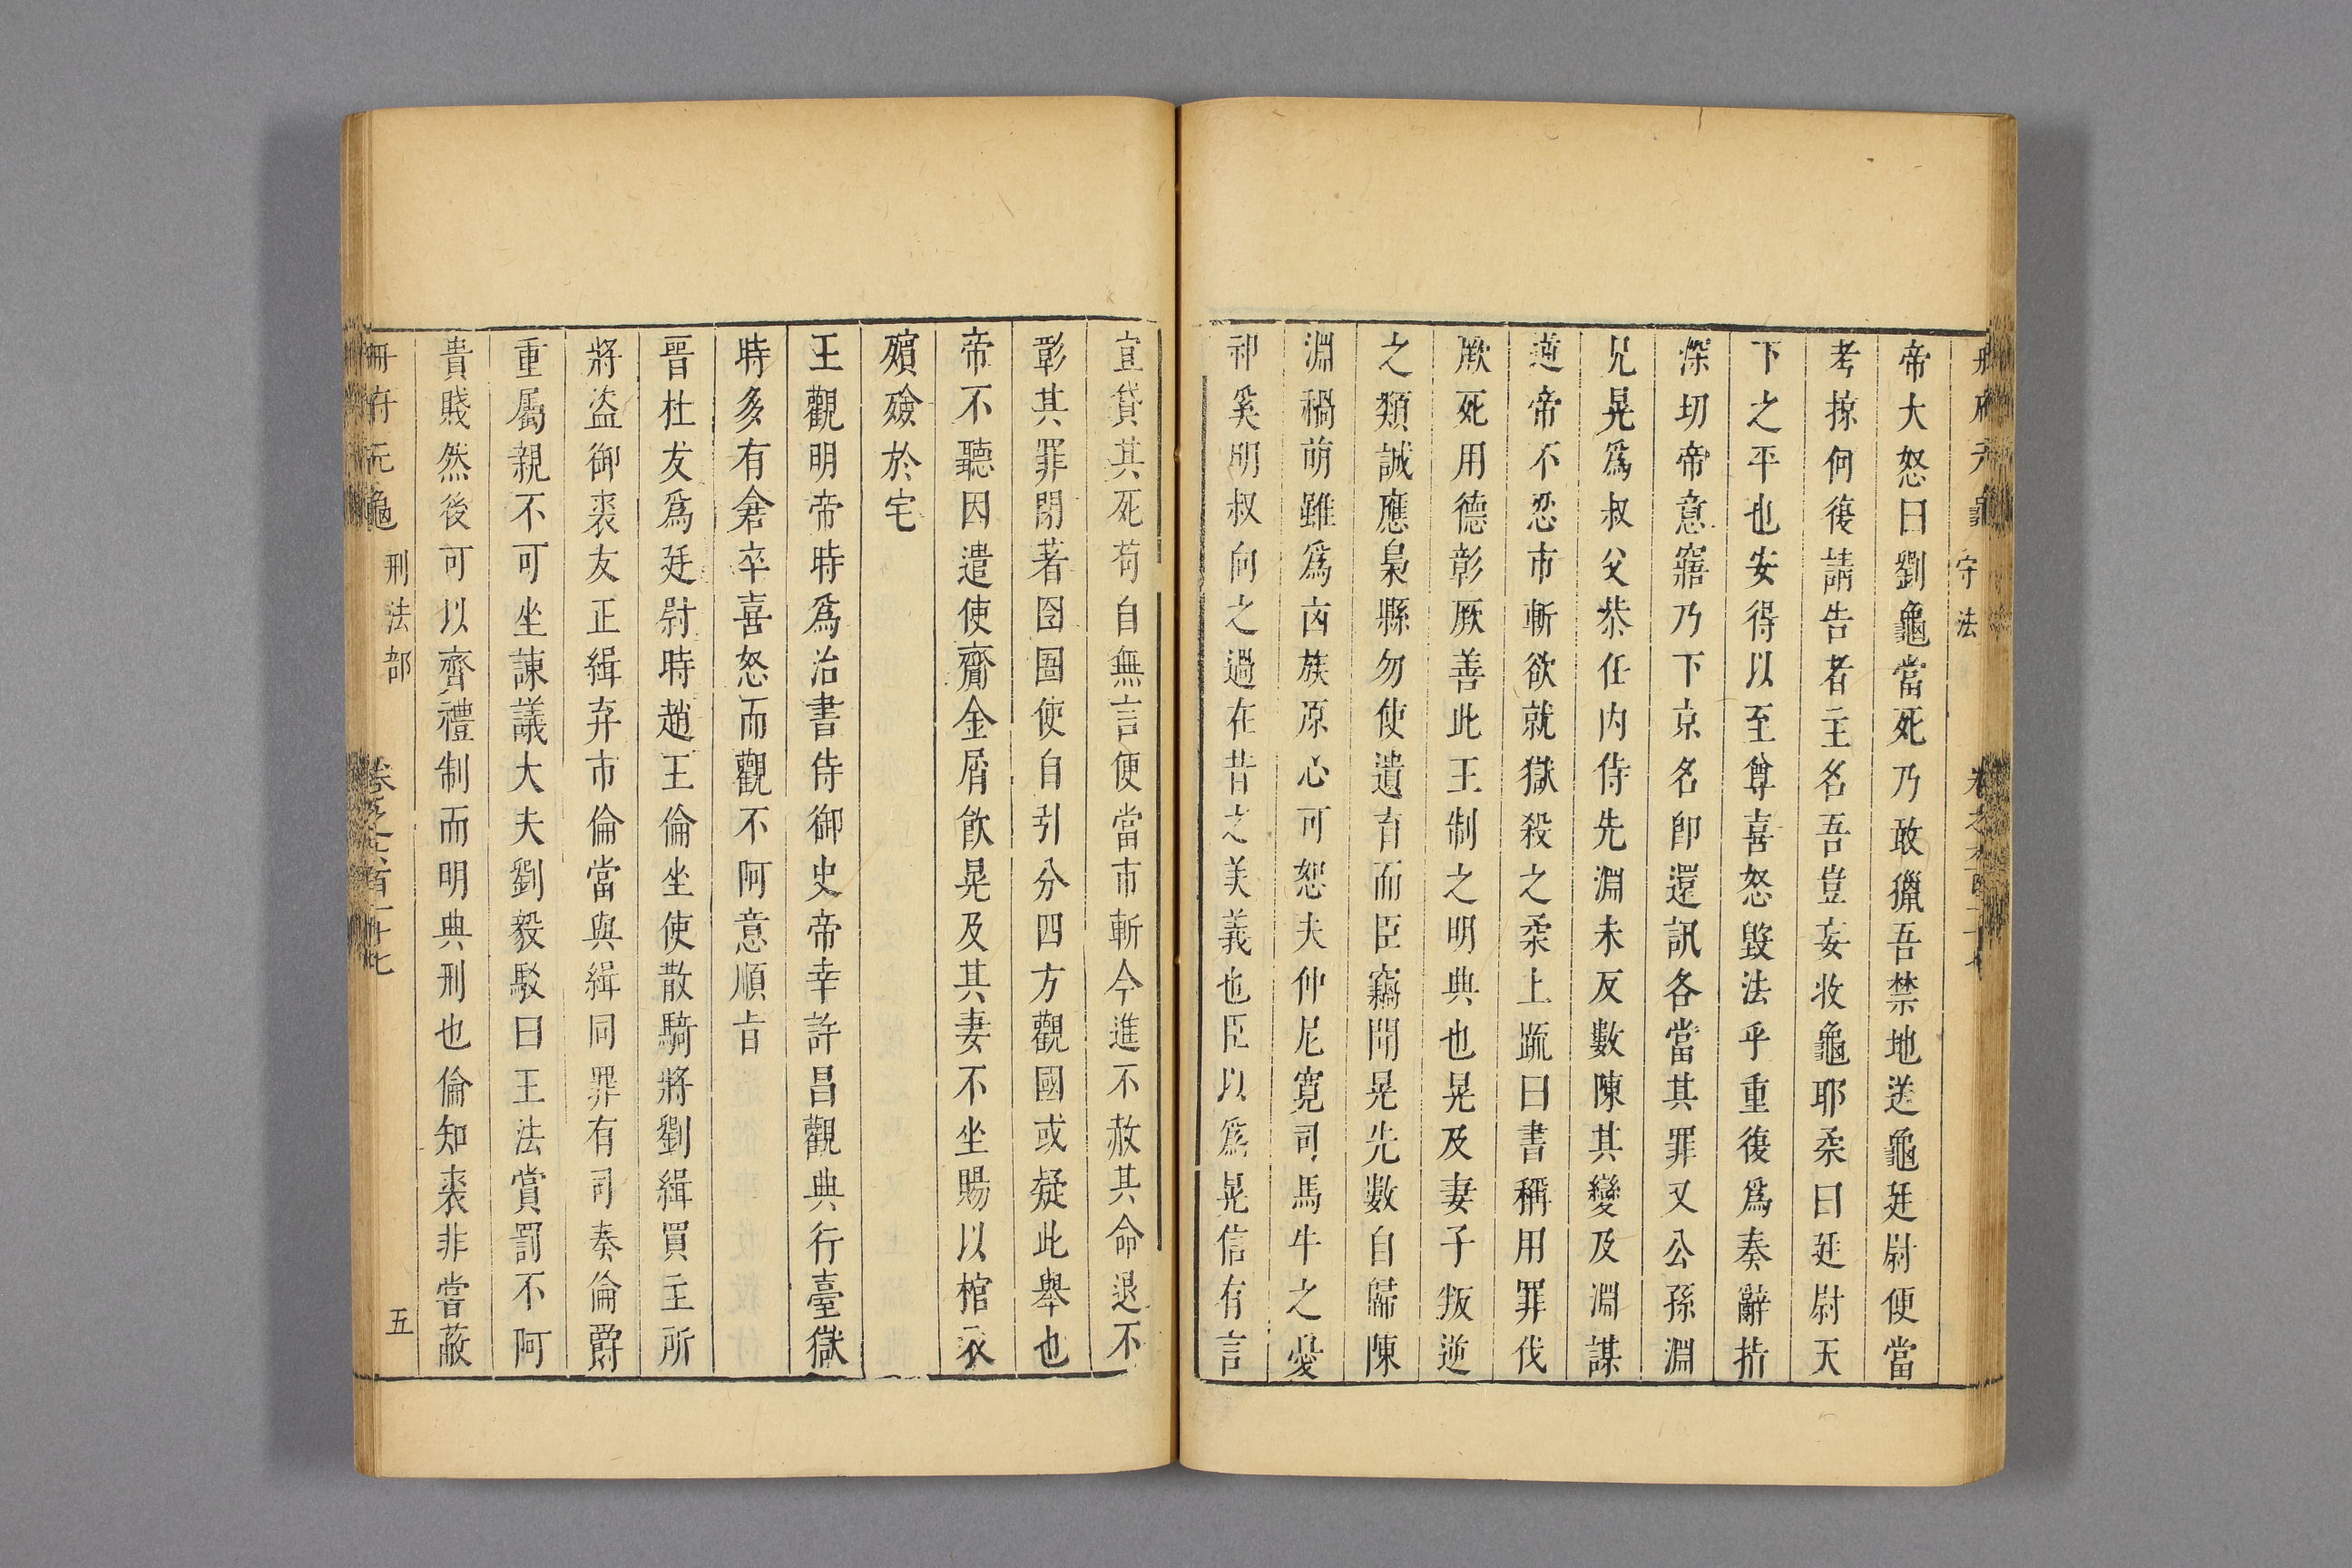 冊府元龜 守法 卷之六百一十七
帝大怒曰劉龜當死乃敢獵吾禁地送龜廷尉便當
考掠何復請告者主名吾豈妄收龜耶柔曰廷尉天
下之平也安得以至尊喜怒毀法乎重復爲奏辭指
深切帝意寤乃下京名卽還訊各當其罪又公孫淵
兄晃爲叔父恭任內侍先淵未反數陳其變及淵謀
逆帝不忍市斬欲就獄殺之柔上疏曰書稱用罪伐
厥死用德彰厥善此王制之明典也晃及妻子叛逆
之類誠應梟縣勿使遺育而臣竊聞晃先數自歸陳
淵禍萌雖爲凶族原心可恕夫仲尼寬司馬牛之憂
祁奚明叔向之過在昔之美義也臣以爲晃信有言
宜貸其死苟自無言便當市斬今進不赦其命退不
彰其罪閉著囹圄使自引分四方觀國或疑此舉也
帝不聽因遣使齎金屑飮晃及其妻不坐賜以棺衣
殯殮於宅
王觀明帝時爲治書侍御史帝幸許昌觀典行臺獄
時多有倉卒喜怒而觀不阿意順旨
晉杜友爲廷尉時趙王倫坐使散騎將劉緝買主所
將盜御裘友正緝弃市倫當與緝同罪有司奏倫爵
重屬親不可坐諫議大夫劉毅駁曰王法賞罰不阿
貴賤然後可以齊禮制而明典刑也倫知裘非嘗蔽
冊府元龜 刑法部 卷之六百一十七 五